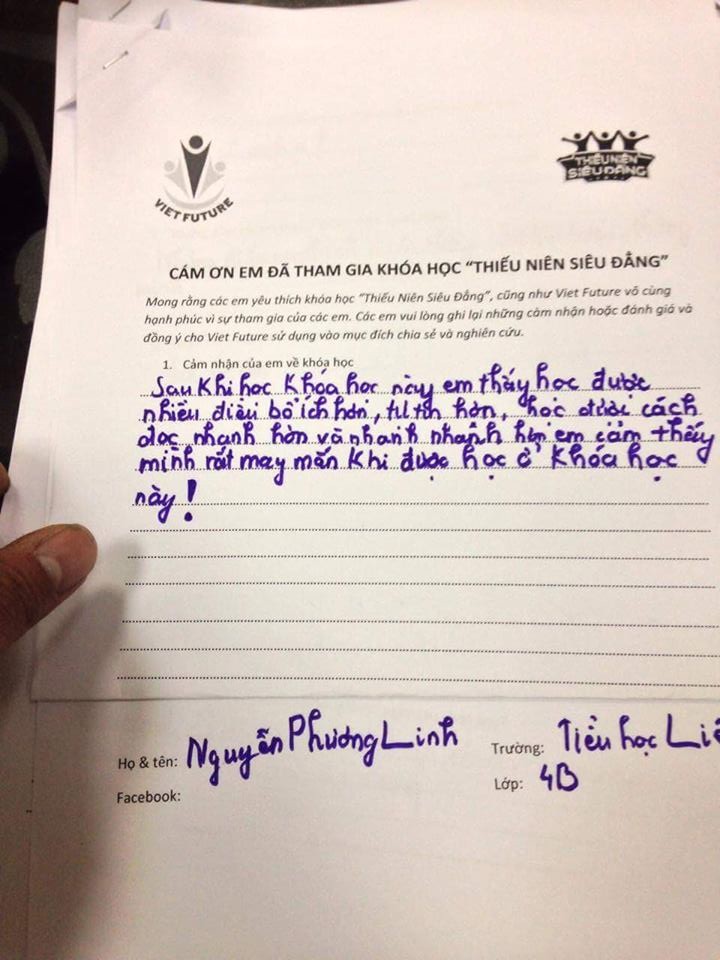 VIET FUTURE
THIẾU NIÊN
SIÊU ĐẲNG
CÁM ƠN EM ĐÃ THAM GIA KHÓA HỌC “THIẾU NIÊN SIÊU ĐẲNG”
Mong rằng các em yêu thích khóa học “Thiếu Niên Siêu Đẳng”, cũng như Viet Future vô cùng
hạnh phúc vì sự tham gia của các em. Các em vui lòng ghi lại những cảm nhận hoặc đánh giá và
đồng ý cho Viet Future sử dụng vào mục đích chia sẻ và nghiên cứu.
1. Cảm nhận của em về khóa học
Sau khi học khóa học này em thấy học được
nhiều điều bổ ích hơn, tự tin hơn, học được cách
đọc nhanh hơn và nhanh nhanh hơn em cảm thấy
mình rất may mắn khi được học ở khóa học
này!
Họ & tên: Nguyễn Phương Linh
Trường: Tiểu học
Facebook:
Lớp: 4B